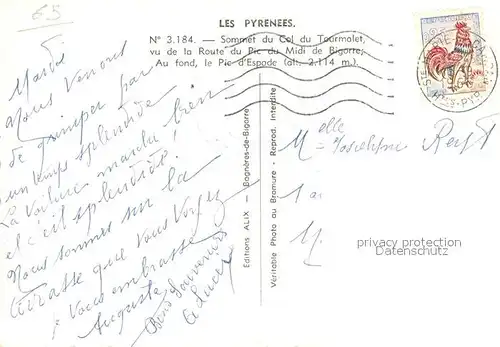 65
LES PYRENEES.
N° 3.184. — Sommet du Col du Tourmalet,
vu de la Route du Pic du Midi de Bigorre;
Au fond, le Pic d'Espade (alt. 2.114 m.)
Mardi
Nous Venons
de grimper par
un temps splendide
La Voiture marche bien
et c'est splendide.
Nous sommes sur la
terrasse que vous Voyez
je vous embrasse
Auguste
Bons Souvenirs
Lucie
Editions ALIX - Bagnères-de-Bigorre
Véritable Photo au Bromure - Reprod. Interdite
Melle Josephine
M.
privacy protection
watermark